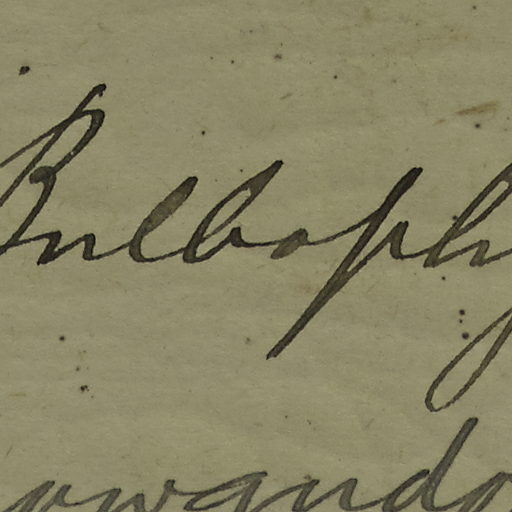 Bulbophy
owando